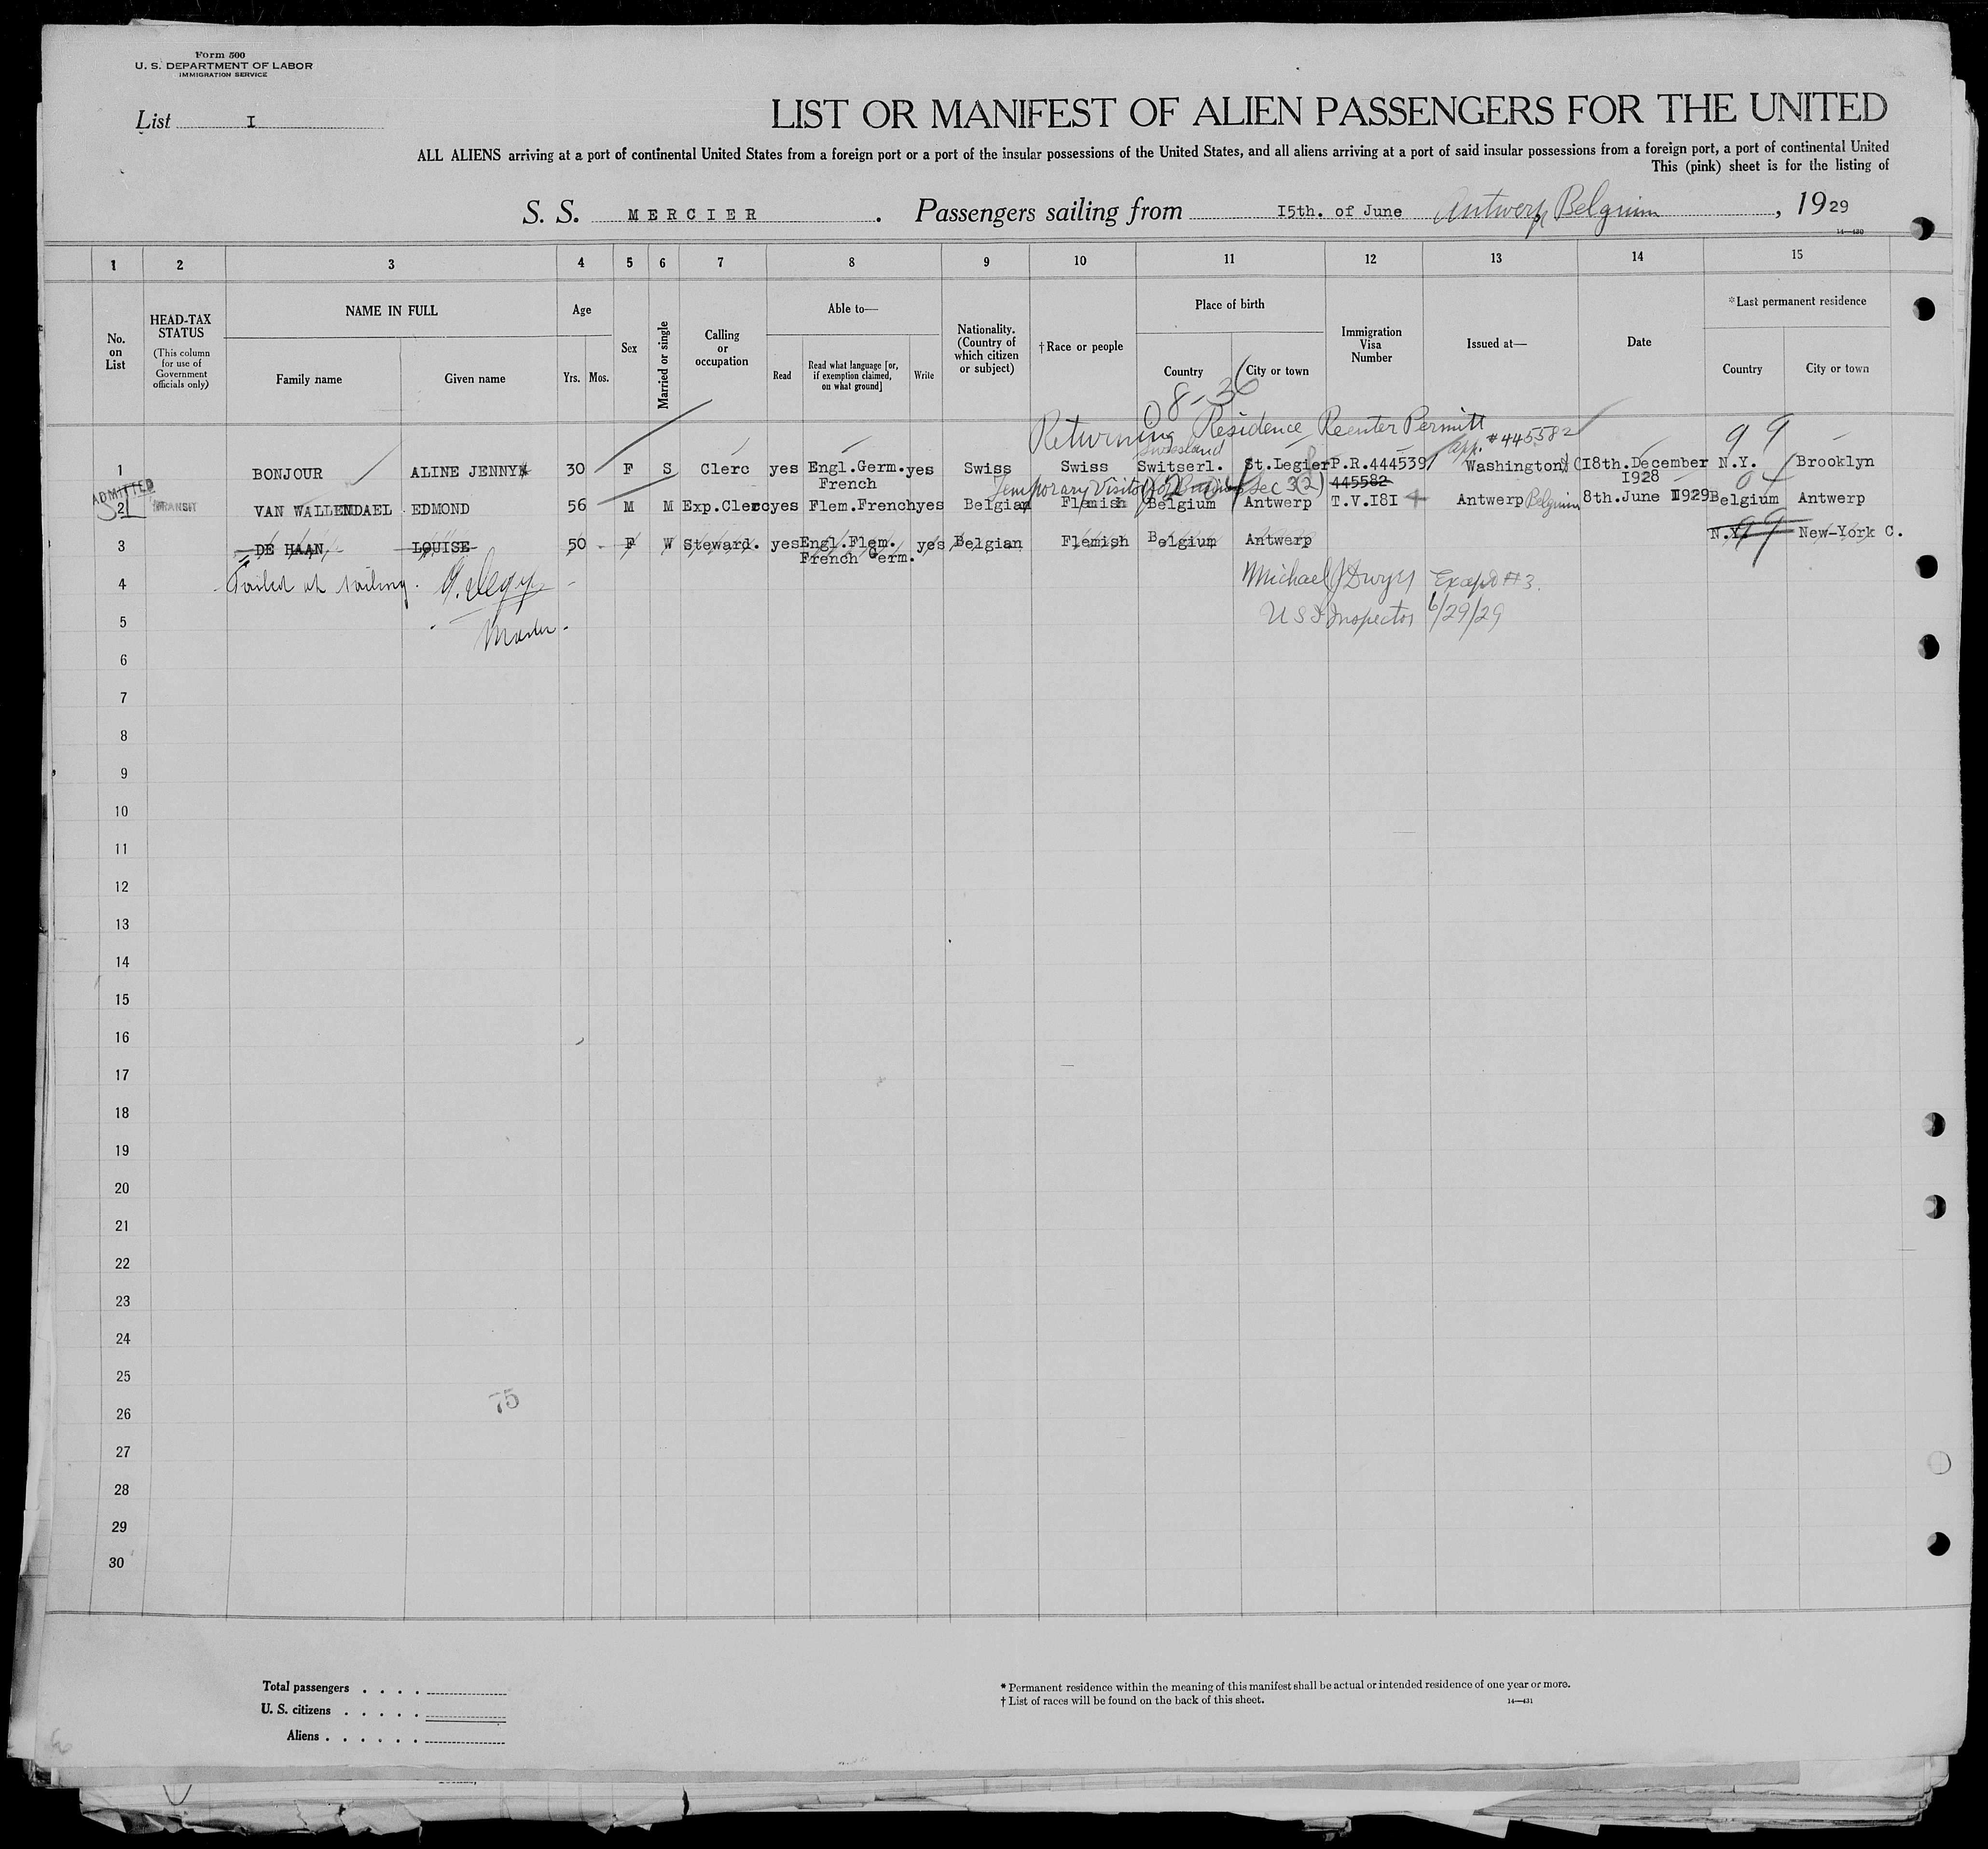 Form 500
U. S. DEPARTMENT OF LABOR
IMMIGRATION SERVICE
List I
LIST OR MANIFEST OF ALIEN PASSENGERS FOR THE UNITED
ALL ALIENS arriving at a port of continental United States from a foreign port or a port of the insular possessions of the United States, and all aliens arriving at a port of said insular possessions from a foreign port, a port of continental United
This (pink) sheet is for the listing of
S. S. MERCIER . Passengers sailing from 15th. of June Antwerp Belgium , 1929
14—430
1 2 3 4 5 6 7 8 9 10 11 12 13 14 15
No. on List
HEAD-TAX STATUS
(This column for use of Government officials only)
NAME IN FULL
Family name Given name
Age
Yrs. Mos.
Sex
Married or single
Calling or occupation
Able to—
Read
Read what language [or, if exemption claimed, on what ground]
Write
Nationality. (Country of which citizen or subject)
† Race or people
Place of birth
Country City or town
Immigration Visa Number
Issued at—
Date
* Last permanent residence
Country City or town
8-36
Returning Residence Reenter Permitt
app. #445582
99
1 BONJOUR ALINE JENNY 30 F S Clerc yes Engl.Germ. French yes Swiss Swiss Switserl. St.Legier P.R.444539 445582 Washington 18th.December 1928 N.Y. Brooklyn
Temporary Visitor for Sec 3(2)
ADMITTED
TRANSIT
2 VAN WALLENDAEL EDMOND 56 M M Exp.Clerc yes Flem.French yes Belgian Flemish Belgium Antwerp T.V.181 Antwerp Belgium 8th.June 1929 Belgium Antwerp
3 DE HAAN LOUISE 50 F W Steward. yes Engl.Flem. French Germ. yes Belgian Flemish Belgium Antwerp N.Y. 99 New-York C.
4 Failed at sailing.
Michael J Dwyer Except #3.
5 Master.
U S I Inspector 6/29/29
6
7
8
9
10
11
12
13
14
15
16
17
18
19
20
21
22
23
24
25
75
26
27
28
29
30
Total passengers
U. S. citizens
Aliens
* Permanent residence within the meaning of this manifest shall be actual or intended residence of one year or more.
† List of races will be found on the back of this sheet.
14—431